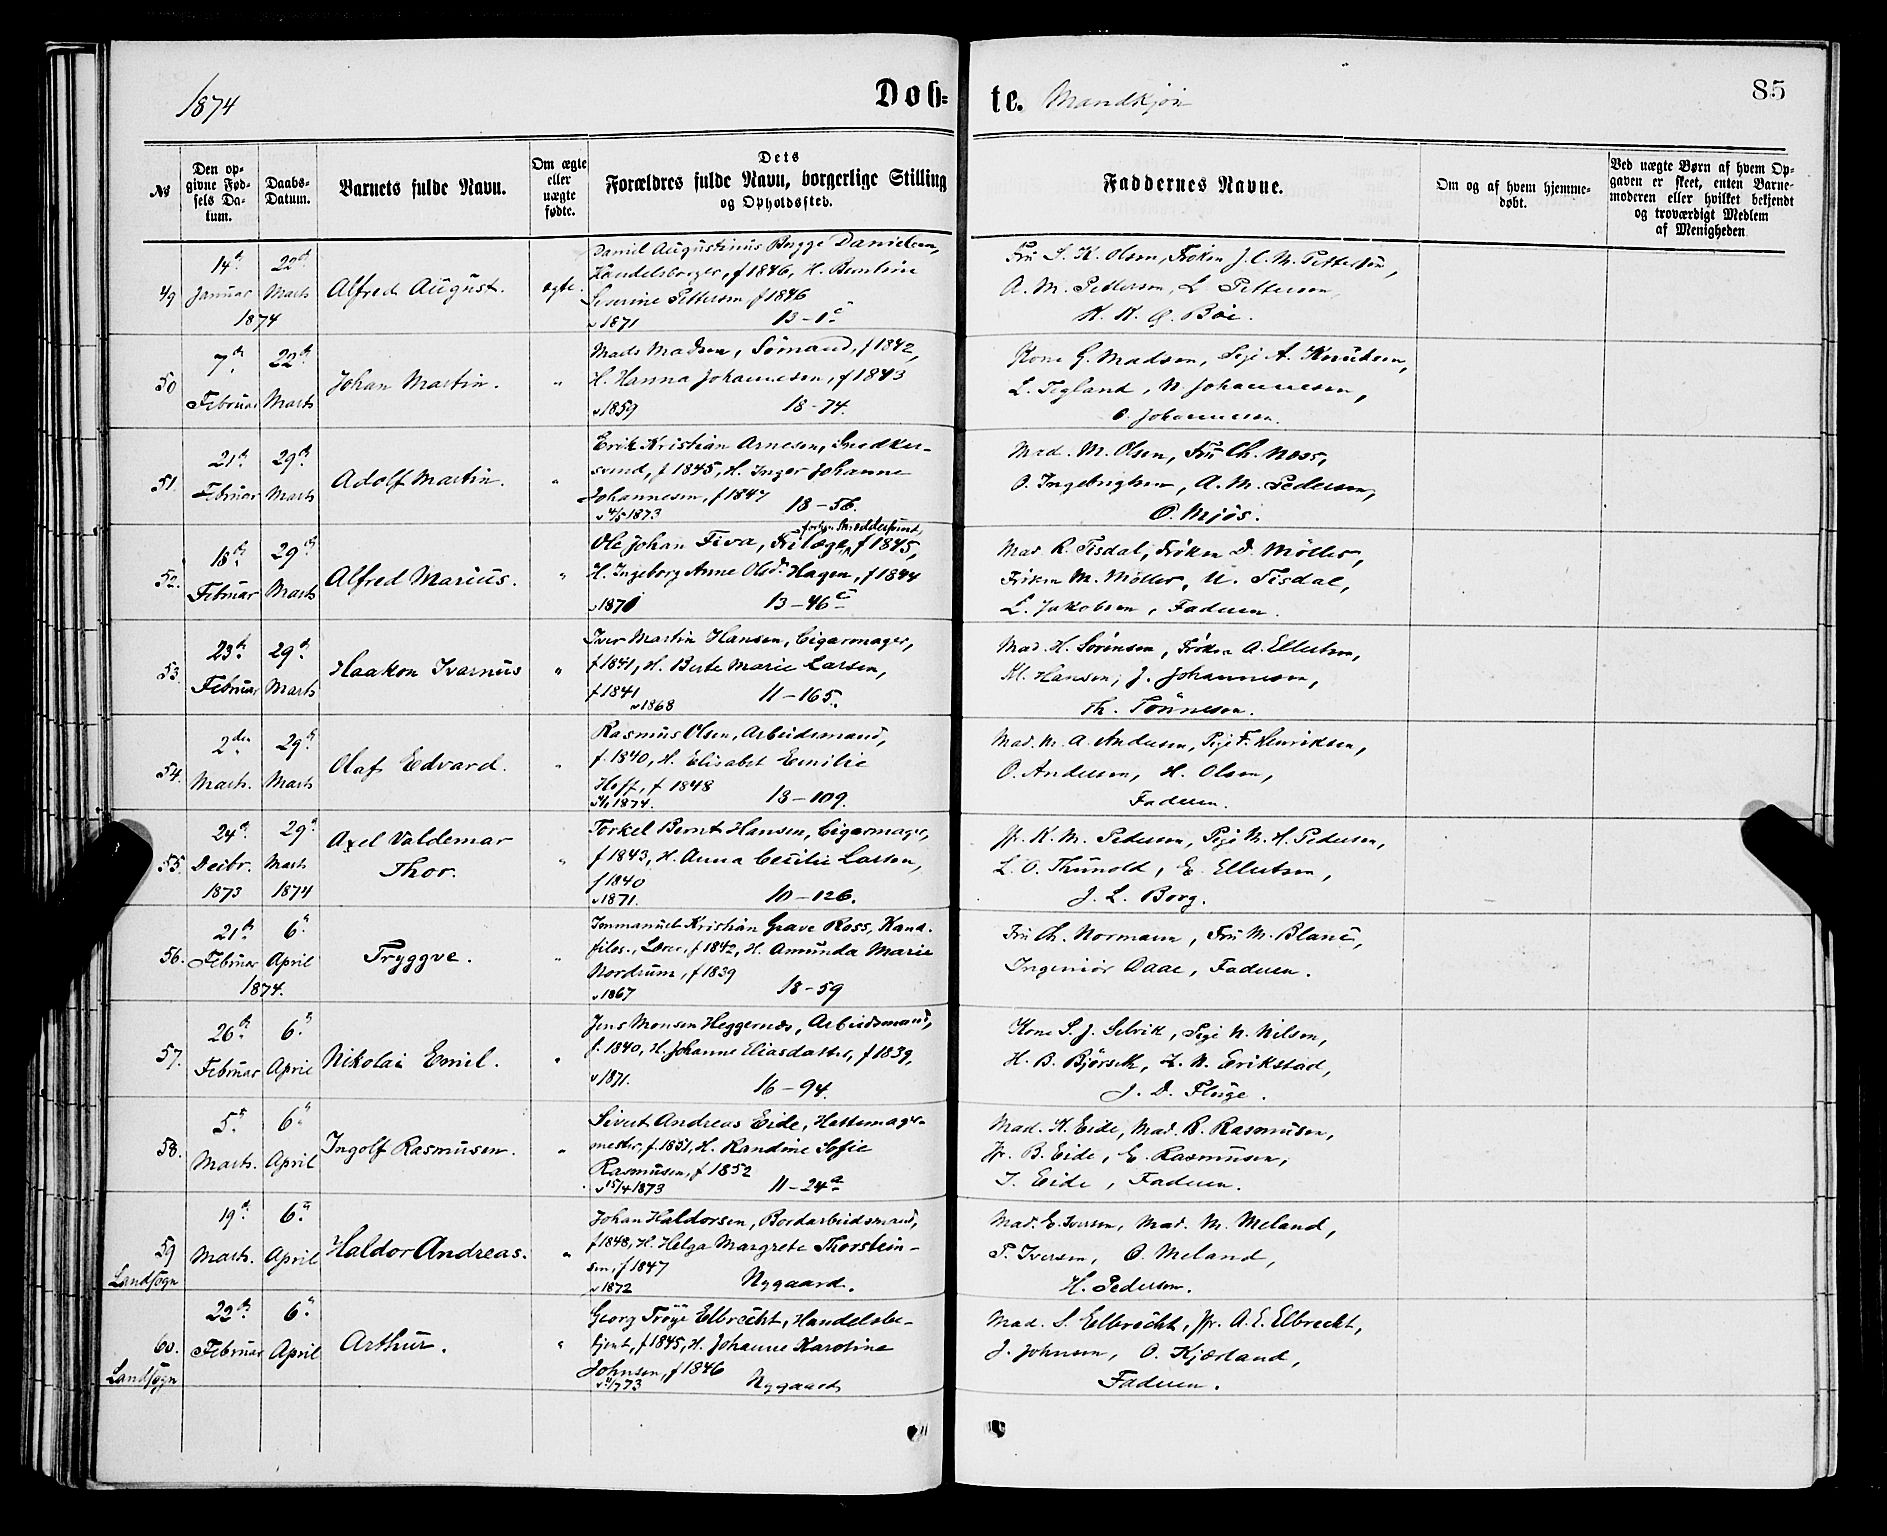 1874
Døb-
te. Mandkjøn
85
No
Den opgivne Fødsels Datum.
Daabs-Datum.
Barnets fulde Navn.
Om ægte eller uægte fødte.
Dets Forældres fulde Navn, borgerlige Stilling og Opholdssted.
Faddernes Navne.
Om og af hvem hjemmedøbt.
Ved uægte Børn af hvem Opgaven er skeet, enten Barnemoderen eller hvilket bekjendt og troværdigt Medlem af Menigheden
49 14de Januar 1874 22de Marts Alfred August. ægte.
Daniel Augustinus Brygge Danielsen,
Handelsborger, f 1846, H.
Severine Pettersen f 1846
v 1871 13-1c
Fru S. K. Olsen, Frøken J. C. M. Pettersen,
A. M. Pettersen, L. Pettersen,
K. K. G. Bøe.
50 7de Februar 22de Marts Johan Martin. "
Mads Madsen, Sømand, f 1842,
H. Hanna Johannesen, f 1843
v 1859 18-74.
Kone G. Madsen, Pige A. Knudsen,
L. Tegland, N. Johannesen,
O. Johannesen.
51. 21de Februar 29de Marts Adolf Martin. "
Erik Kristian Arnesen, Snedker-
svend, f 1845, H. Inger Johanne
Johannesen, f 1847
v 4/5 1873 18-56.
Mad. M. Olsen, Fru Ch. Moss,
O. Ingebrigtsen, A. M. Pedersen,
O. Mjøs.
52. 18de Februar 29de Marts Alfred Marius. "
Ole Johan Fiva, f 1845,
H. Ingeborg Anne Olsdr. Hagen, f 1844
v 1871 13-46c
Mad. R. Tisdal, Frøken D. Møller,
Frøken M. Møller, U. Tisdal,
L. Jakobsen, Faderen.
53. 23de Februar 29de Marts Haakon Ivarnus "
Iver Martin Hansen, Cigarmager,
f 1841, H. Berte Marie Larsen,
f 1841
v 1868 11-165.
Mad. H. Sørensen, Frøken A. Ellertsen,
M. Hansen, J. Johannesen,
Th. Tønnesen.
54. 2den Marts. 29de Marts Olaf Edvard. "
Rasmus Olsen, Arbeidsmand,
f. 1840, H. Elisabet Emilie
Hoff, f 1848
1874. 13-109.
Mad. N. A. Andersen, Pige F. Henriksen,
O. Andersen, H. Olsen,
Faderen.
55. 24de Decbr. 1873 29de Marts 1874 Axel Valdemar Thor. "
Torkel Bernt Hansen, Cigarmager,
f 1843, H. Anna Cecilie Larsen,
f 1840
v 1871. 10-126.
Jfr. K. M. Pedersen, Pige M. H. Pedersen,
L. O. Thunold, E. Ellertsen,
J. L. Borg.
56. 21de Februar 1874. 6te April Tryggve. "
Immanuel Kristian Grave Ross, Kand.
filos., Lærer, f 1842, H. Amunda Marie
Nordrum, f 1839
v 1867 18-59
Fru Ch. Normann, Fru M. Blanc,
Ingeniør Daae, Faderen.
57. 26de Februar 6te April Nikolai Emil. "
Jens Monsen Heggernæs, Arbeidsmand,
f. 1840, H. Johanne Eliasdatter, f 1839,
v 1871. 16-94.
Kone S. J. Selvik, Pige N. Nilsen,
H. B. Bjørsvik, L. N. Erikstad,
J. D. Fluge.
58. 5te Marts. 6te April Ingolf Rasmusen. "
Sivert Andreas Eide, Hattemager-
mester, f. 1851, H. Randine Sofie
Rasmusen, f 1852
v 15/4 1873 11-24a
Mad. K. Eide, Mad. B. Rasmusen,
Jfr. B. Eide, E. Rasmusen,
I. Eide, Faderen.
59 Landsogn 19de Marts. 6te April Haldor Andreas. "
Johan Haldorsen, Bordarbeidsmand,
f 1848, H. Helga Margrete Thorstein-
sen, f 1847
v 1872 Nygaard.
Mad. E. Iversen, Mad. M. Meland,
P. Iversen, O. Meland,
H. Pedersen.
60. Landsogn 22de Februar 6te April Arthur. "
Georg Trøye Elbrecht, Handelsbe-
tjent, f 1845, H. Johanne Karoline
Johnsen, f 1846
Nygaard
Mad. S. Elbrecht, Jfr. A. E. Elbrecht,
J. Johnsen, O. Kjærland,
Faderen.